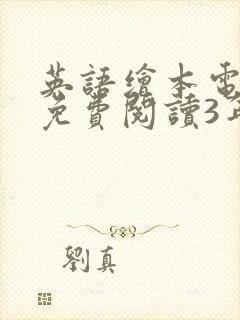 英語繪本電
免費閱讀3年
劉真